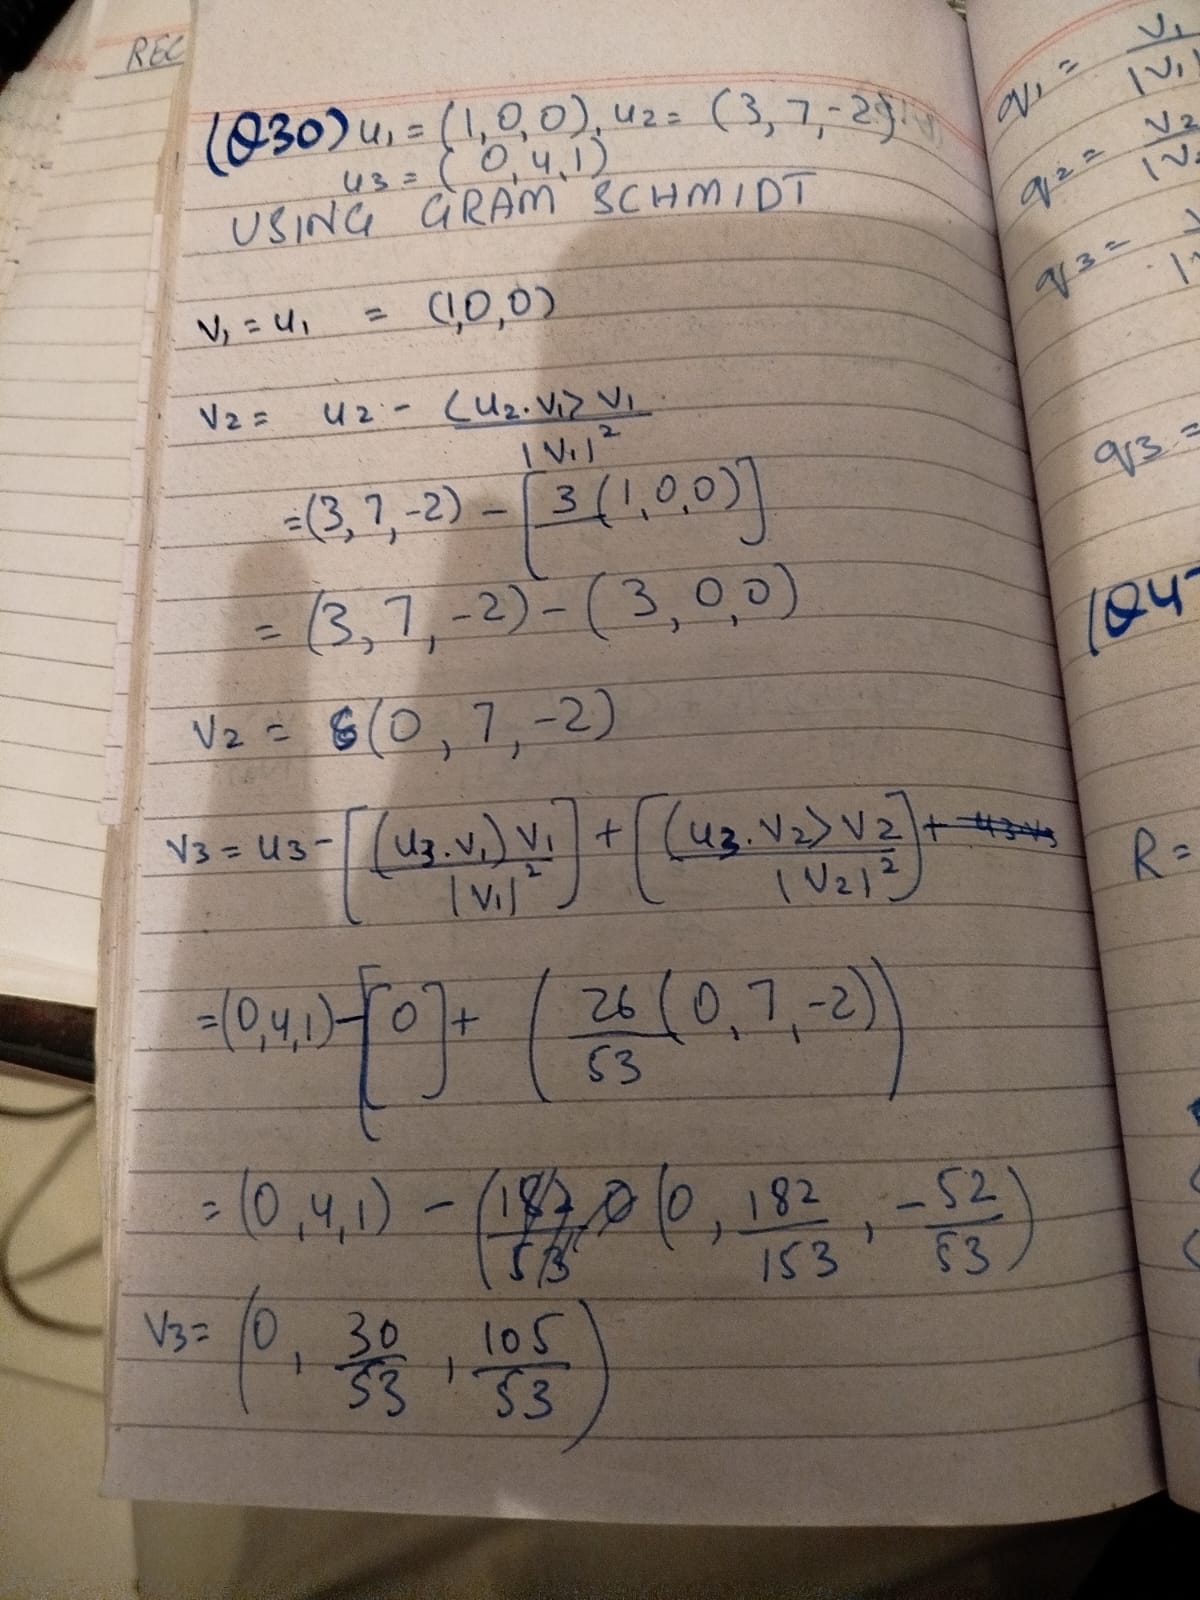 REC
(Q30) u1 = (1,0,0), u2 = (3,7,-2)
u3 = (0,4,1)
USING GRAM SCHMIDT
v1 = u1 = (1,0,0)
v2 = u2 - <u2.v1> v1
|v1|²
= (3,7,-2) - [3(1,0,0)]
= (3,7,-2) - (3,0,0)
v2 = (0,7,-2)
v3 = u3 - [(u3.v1) v1] + [(u3.v2> v2] +
|v1|² |v2|²
= (0,4,1) - [0] + (26 (0,7,-2))
53
= (0,4,1) - (0, 182/153, -52/53)
v3 = (0, 30/53, 105/53)
q1 = v1
|v1|
q2 = v2
|v2
q3 =
q3 =
(Q4
R =